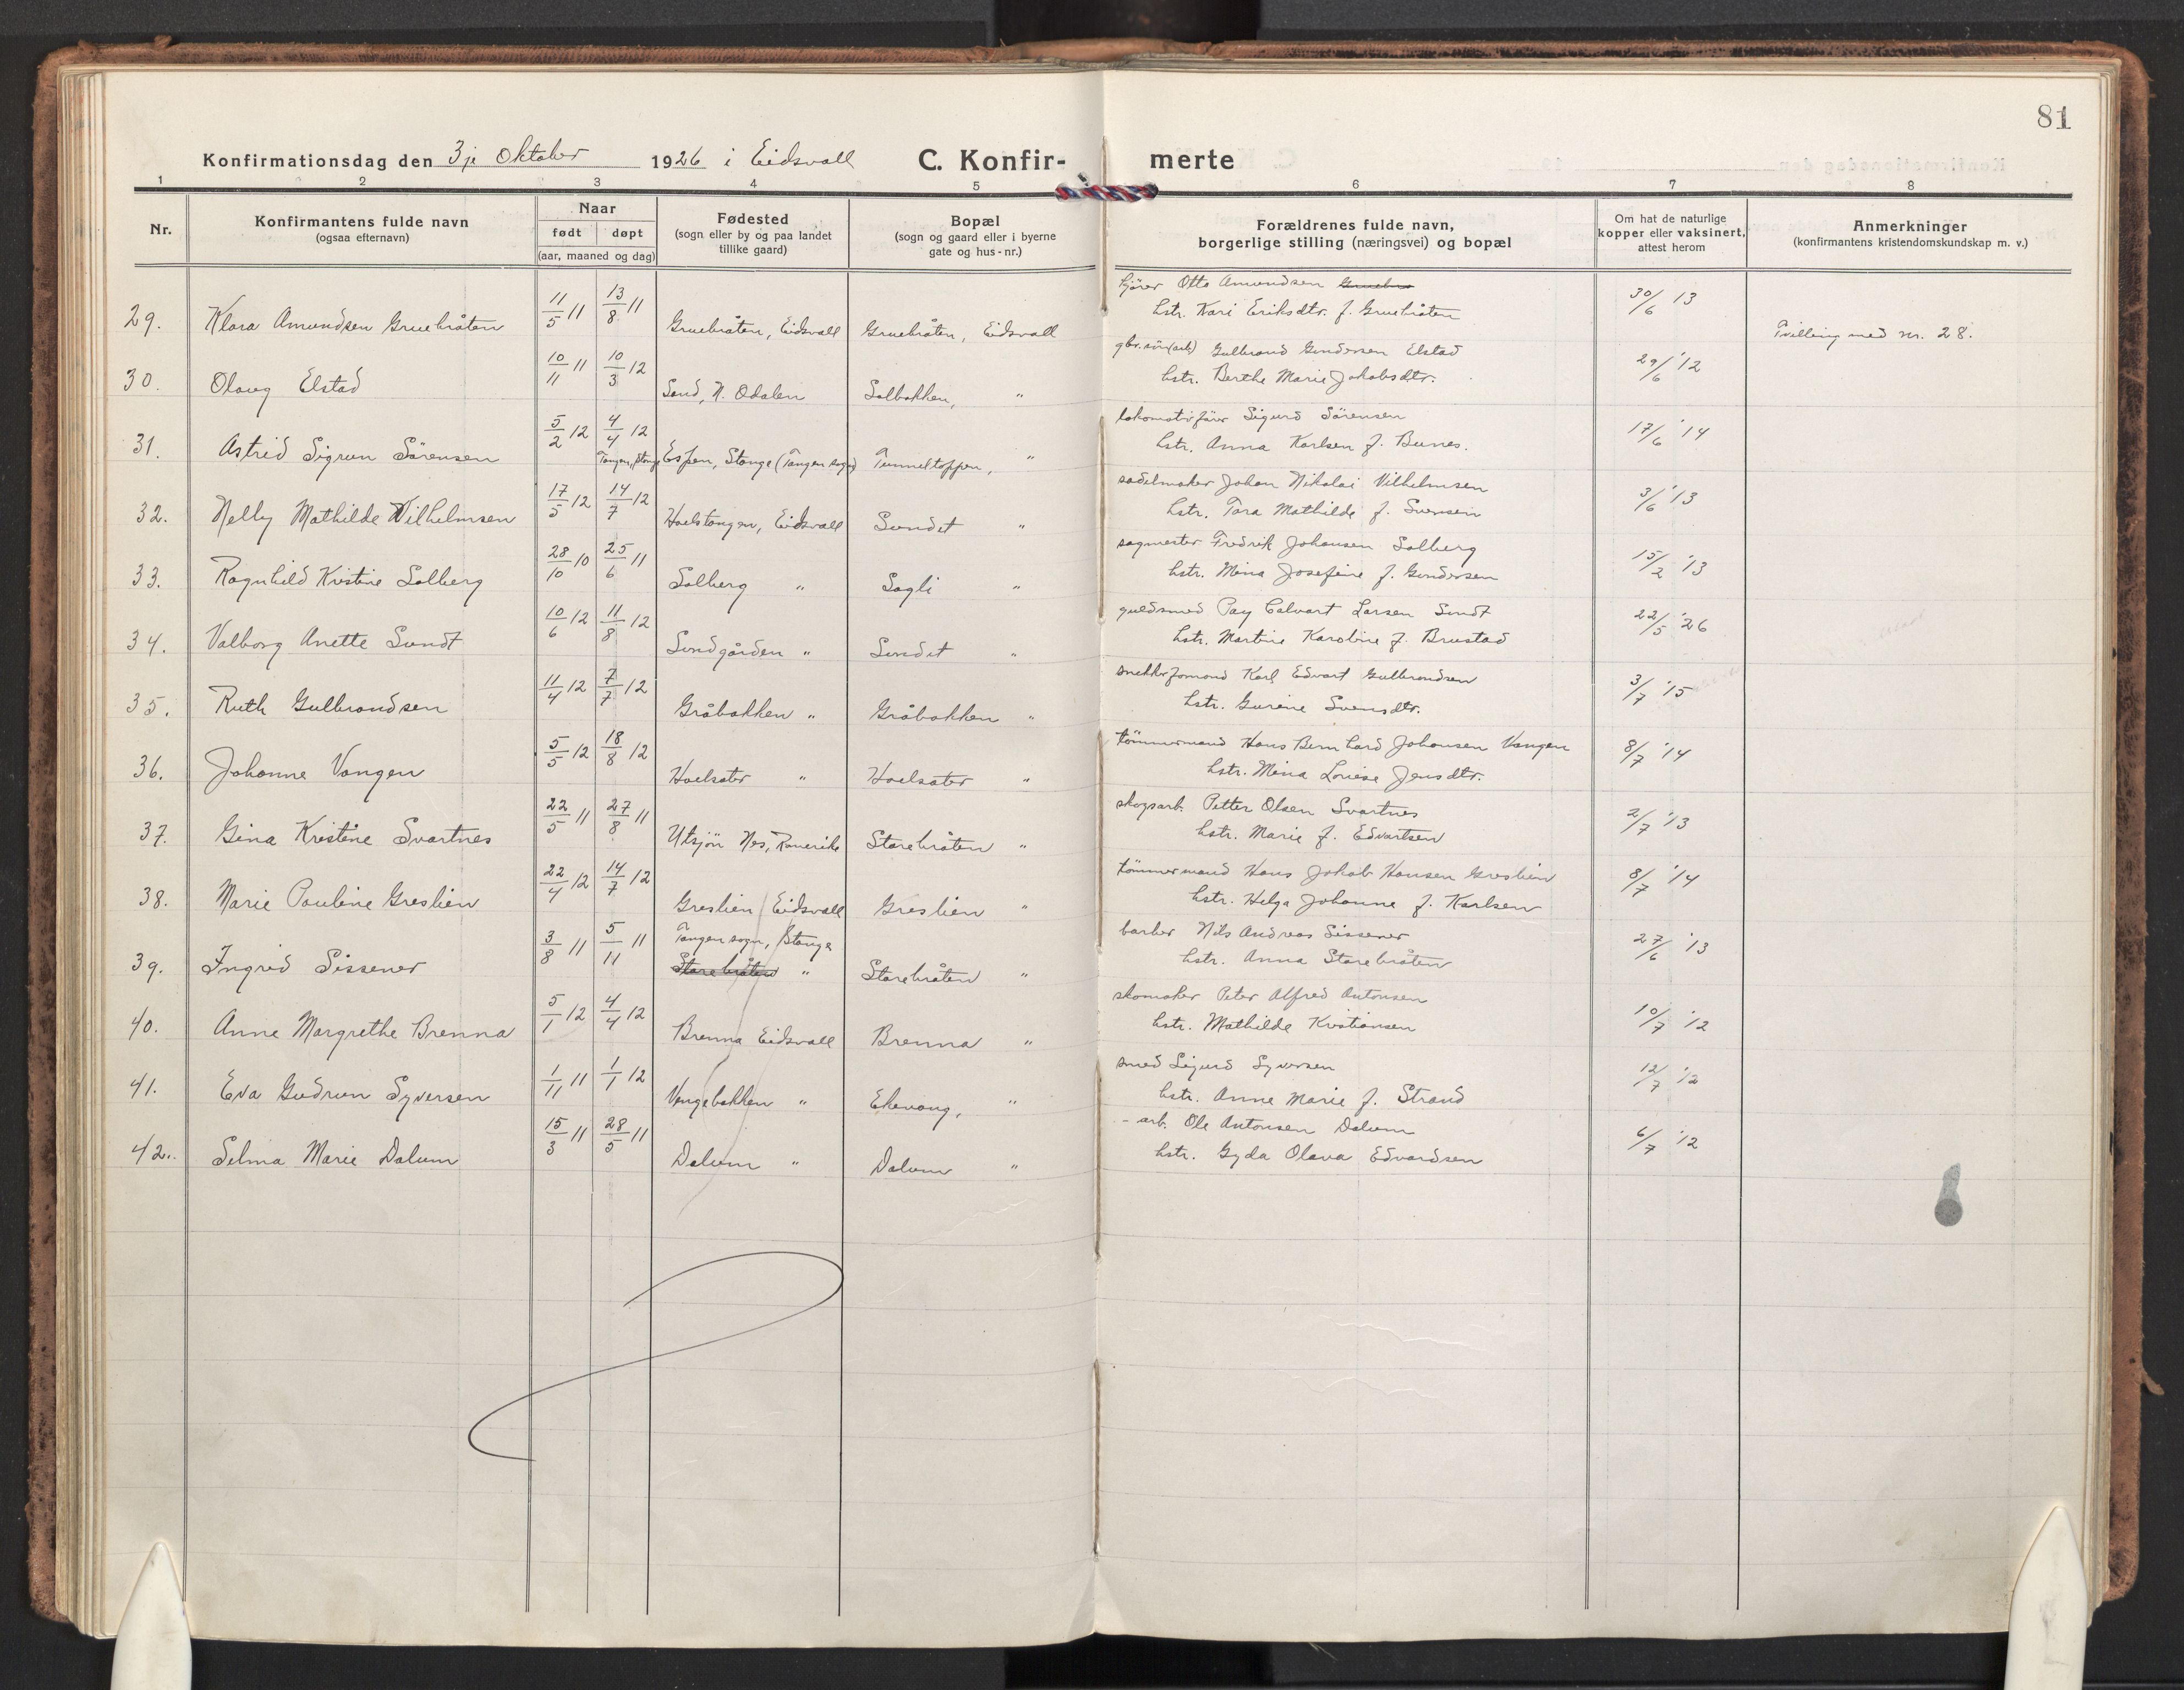 81
Konfirmationsdag den 3je Oktober 1926 i Eidsvoll C. Konfir- merte
1 2 3 4 5 6 7 8
Nr.
Konfirmantens fulde navn
(ogsaa efternavn)
Naar
født døpt
(aar, maaned og dag)
Fødested
(sogn eller by og paa landet
tillike gaard)
Bopæl
(sogn og gaard eller i byerne
gate og hus-nr.)
Forældrenes fulde navn,
borgerlige stilling (næringsvei) og bopæl
Om hat de naturlige
kopper eller vaksinert,
attest herom
Anmerkninger
(konfirmantens kristendomskundskap m. v.)
29. Klara Amundsen Gruebråten 11/5 11 13/8 11 Gruebråten, Eidsvoll Gruebråten, Eidsvoll
kjörer Otto Amundsen
hstr. Kari Eriksdtr. f. Gruebråten
30/6 13
Tvilling med nr. 28.
30. Olaug Elstad 10/11 11 10/3 12 Sand, N. Odalen Solbakken, "
gbr.sön (arb) Gulbrand Gundersen Elstad
hstr. Berthe Marie Jakobsdtr.
29/6 '12
31. Astrid Sigrun Sörensen 5/2 12 4/4 12 Tangen, Stange Espen, Stange (Tangen sogn) Tunneltoppen, "
lokomotivförer Sigurd Sörensen
hstr. Anna Karlsen f. Bunes.
17/6 '14
32. Nelly Mathilde Wilhelmsen 17/5 12 14/7 12 Hoelstangen, Eidsvoll Sundet "
sadelmaker Johan Nikolai Vilhelmsen
hstr. Tora Mathilde f. Svensen
3/6 '13
33. Ragnhild Kristine Solberg 28/10 10 25/6 11 Solberg " Sagli "
sagmester Fredrik Johansen Solberg
hstr. Mina Josefine f. Gundersen
15/2 '13
34. Valborg Anette Sundt 10/6 12 11/8 12 Sundgården " Sundet "
guldsmed Pay Calvart Larsen Sundt
hstr. Martine Karoline f. Brustad
22/5 '26
35. Ruth Gulbrandsen 11/4 12 7/7 12 Gråbakken " Gråbakken "
snekkerformand Karl Edvart Gulbrandsen
hstr. Gurine Svensdtr.
3/7 '15
36. Johanne Vangen 5/5 12 18/8 12 Hoelsæter " Hoelsæter "
tömmermand Hans Bernhard Johansen Vangen
hstr. Mina Lovise Jensdtr.
8/7 '14
37. Gina Kristine Svartnes 22/5 11 27/8 11 Utsjön Nes, Romerike Starebråten "
skogsarb. Petter Olsen Svartnes
hstr. Marie f. Edvartsen
2/7 '13
38. Marie Pauline Greslien 22/4 12 14/7 12 Greslien Eidsvoll Greslien "
tömmermand Hans Jakob Hansen Greslien
hstr. Helga Johanne f. Karlsen
8/7 '14
39. Ingrid Sissener 3/8 11 5/11 11 Tangen sogn, Stange
Starebråten " Starebråten "
barber Nils Andreas Sissener
hstr. Anna Starebråten
27/6 '13
40. Anne Margrethe Brenna 5/1 12 4/4 12 Brenna Eidsvoll Brenna "
skomaker Peter Alfred Antonsen
hstr. Mathilde Kristiansen
10/7 '12
41. Eva Gudrun Syversen 1/11 11 1/1 12 Vengebakken " Ekevang, "
smed Sigurd Syversen
hstr. Anne Marie f. Strand
12/7 '12
42. Selma Marie Dalum 15/3 11 28/5 11 Dalum " Dalum "
- arb. Ole Antonsen Dalum
hstr. Gyda Olava Edvardsen
6/7 '12